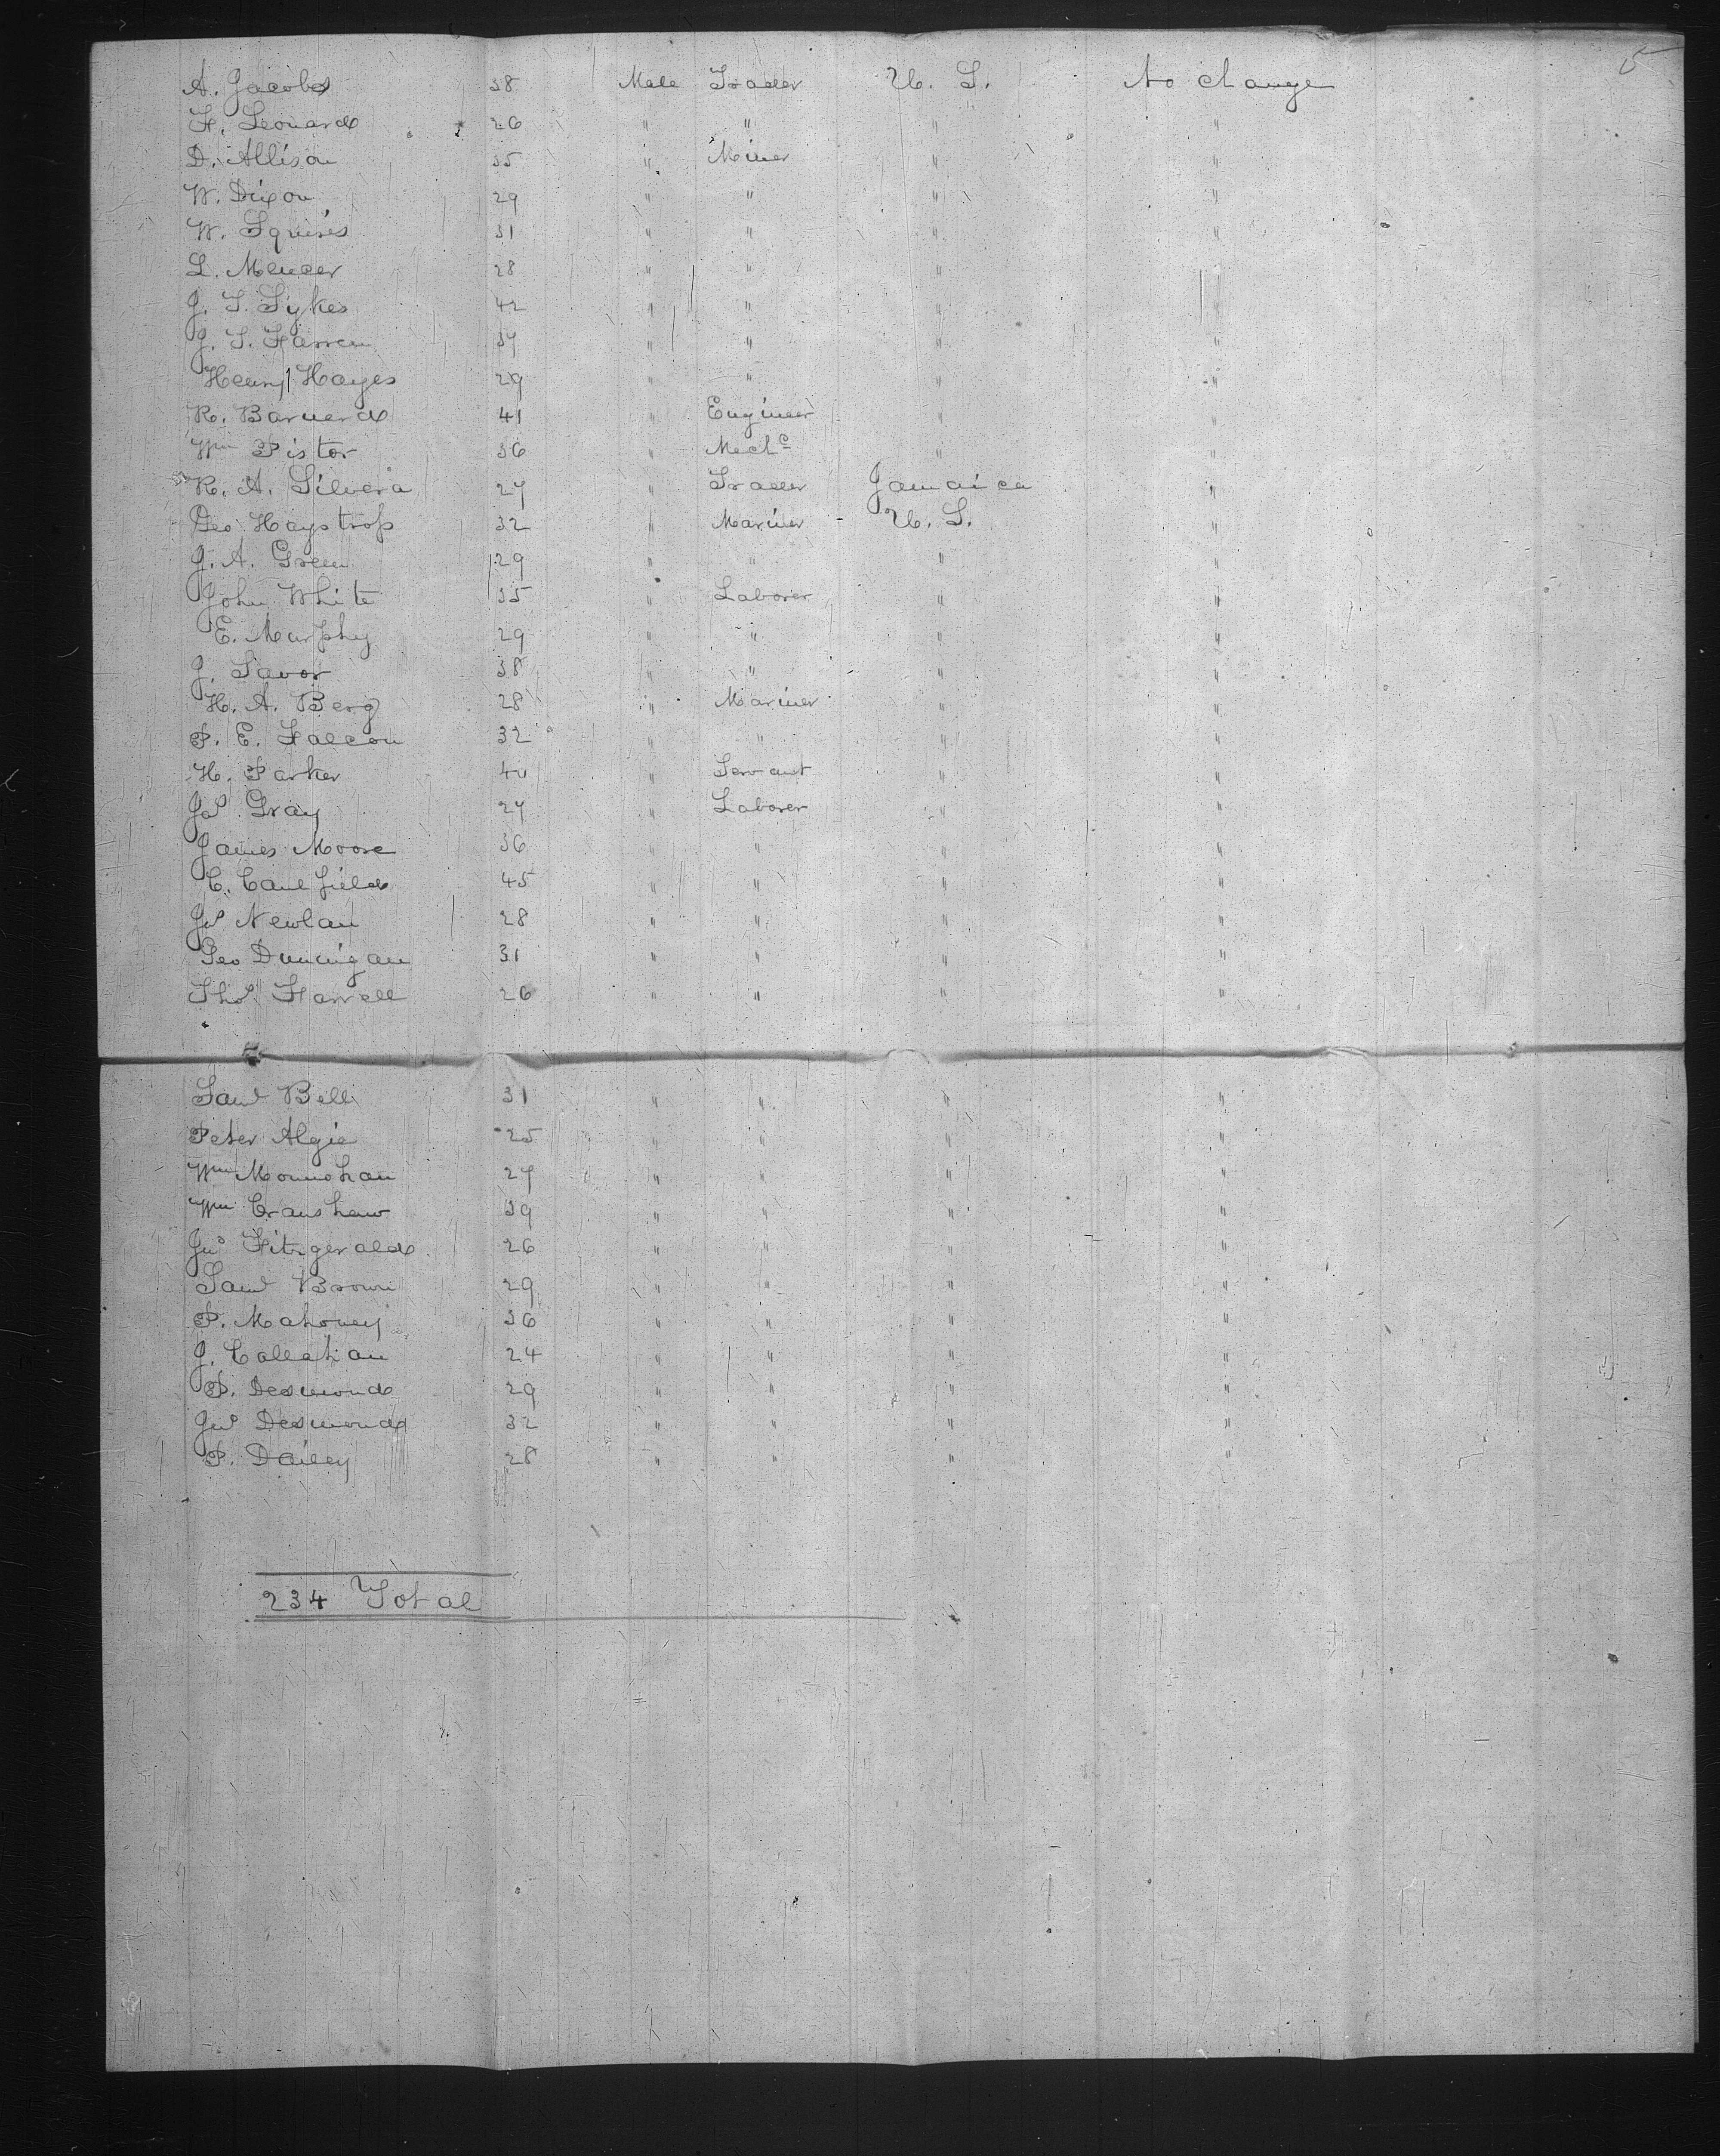 5
A. Jacobs 38 Male Trader U. S. No change
F. Leonard 26 " " " "
D. Allison 35 " Miner " "
W. Dixon 29 " " " "
W. Squires 31 " " " "
L. Mencer 28 " " " "
J. S. Sykes 42 " " " "
J. S. Farren 37 " " " "
Henry Hayes 29 " " " "
R. Barnerd 41 " Engineer " "
Wm Pistor 36 " Mechc " "
R. A. Silvera 27 " Trader Jamaica "
Geo Haystrop 32 " Mariner U. S. "
J. A. Green 29 " " " "
John White 35 " Laborer " "
E. Murphy 29 " " " "
J. Savor 38 " " " "
H. A. Berg 28 " Mariner " "
P. E. Falcon 32 " " " "
H. Parker 40 " Servant " "
Jas Gray 27 " Laborer " "
James Moore 36 " " " "
C. Caulfield 45 " " " "
Jno Newlan 28 " " " "
Geo Dunnigan 31 " " " "
Thos Farrell 26 " " " "
Saml Bell 31 " " " "
Peter Algie 25 " " " "
Wm Monnohan 27 " " " "
Wm Cranshaw 39 " " " "
Jno Fitzgerald 26 " " " "
Saml Brown 29 " " " "
P. Mahoney 36 " " " "
J. Callahan 24 " " " "
P. Desmond 29 " " " "
Jno Desmond 32 " " " "
P. Dailey 28 " " " "
234 Total